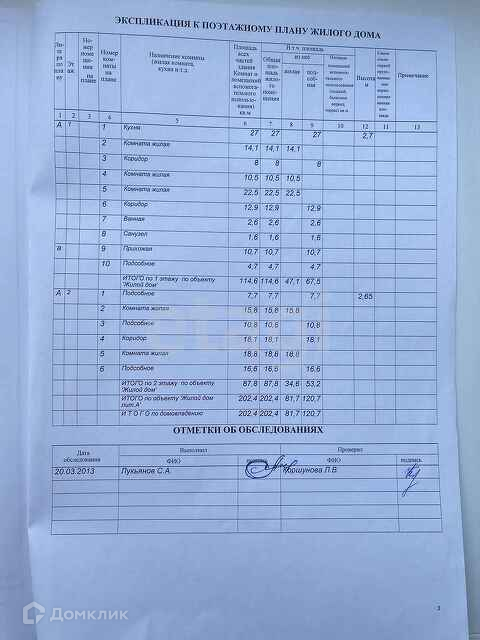 ЭКСПЛИКАЦИЯ К ПОЭТАЖНОМУ ПЛАНУ ЖИЛОГО ДОМА
Ли- те ра по пла ну | Эт аж | Но- мер поме ще- ния на плане | Номер комна- ты на плане | Назначение комнаты (жилая комната, кухня и т.д. | Площадь всех частей здания Комнат и помещений вспомога- тельного использо- вания) кв.м | В т.ч. площадь | Общая пло- щадь жило- го поме- щения | из них | жилая | под- соб- ная | Высота | Примечание
1 2 3 4 5 6 7 8 9 10 11 12 13
А 1 1 Кухня 27 27 27 2,7
2 Комната жилая 14,1 14,1 14,1
3 Коридор 8 8 8
4 Комната жилая 10,5 10,5 10,5
5 Комната жилая 22,5 22,5 22,5
6 Коридор 12,9 12,9 12,9
7 Ванная 2,6 2,6 2,6
8 Санузел 1,6 1,6 1,6
В 9 Прихожая 10,7 10,7 10,7
10 Подсобное 4,7 4,7 4,7
ИТОГО по 1 этажу по объекту 'Жилой дом' 114,6 114,6 47,1 67,5
А 2 1 Подсобное 7,7 7,7 7,7 2,65
2 Комната жилая 15,8 15,8 15,8
3 Подсобное 10,8 10,8 10,8
4 Коридор 18,1 18,1 18,1
5 Комната жилая 18,8 18,8 18,8
6 Подсобное 16,6 16,6 16,6
ИТОГО по 2 этажу по объекту 'Жилой дом' 87,8 87,8 34,6 53,2
ИТОГО по объекту 'Жилой дом лит.А' 202,4 202,4 81,7 120,7
И Т О Г О по домовладению 202,4 202,4 81,7 120,7
ОТМЕТКИ ОБ ОБСЛЕДОВАНИЯХ
Дата обследования | Выполнил | Проверил
ФИО | ФИО подпись
20.03.2013 Лукьянов С.А. Коршунова Л.В.
3
Домклик